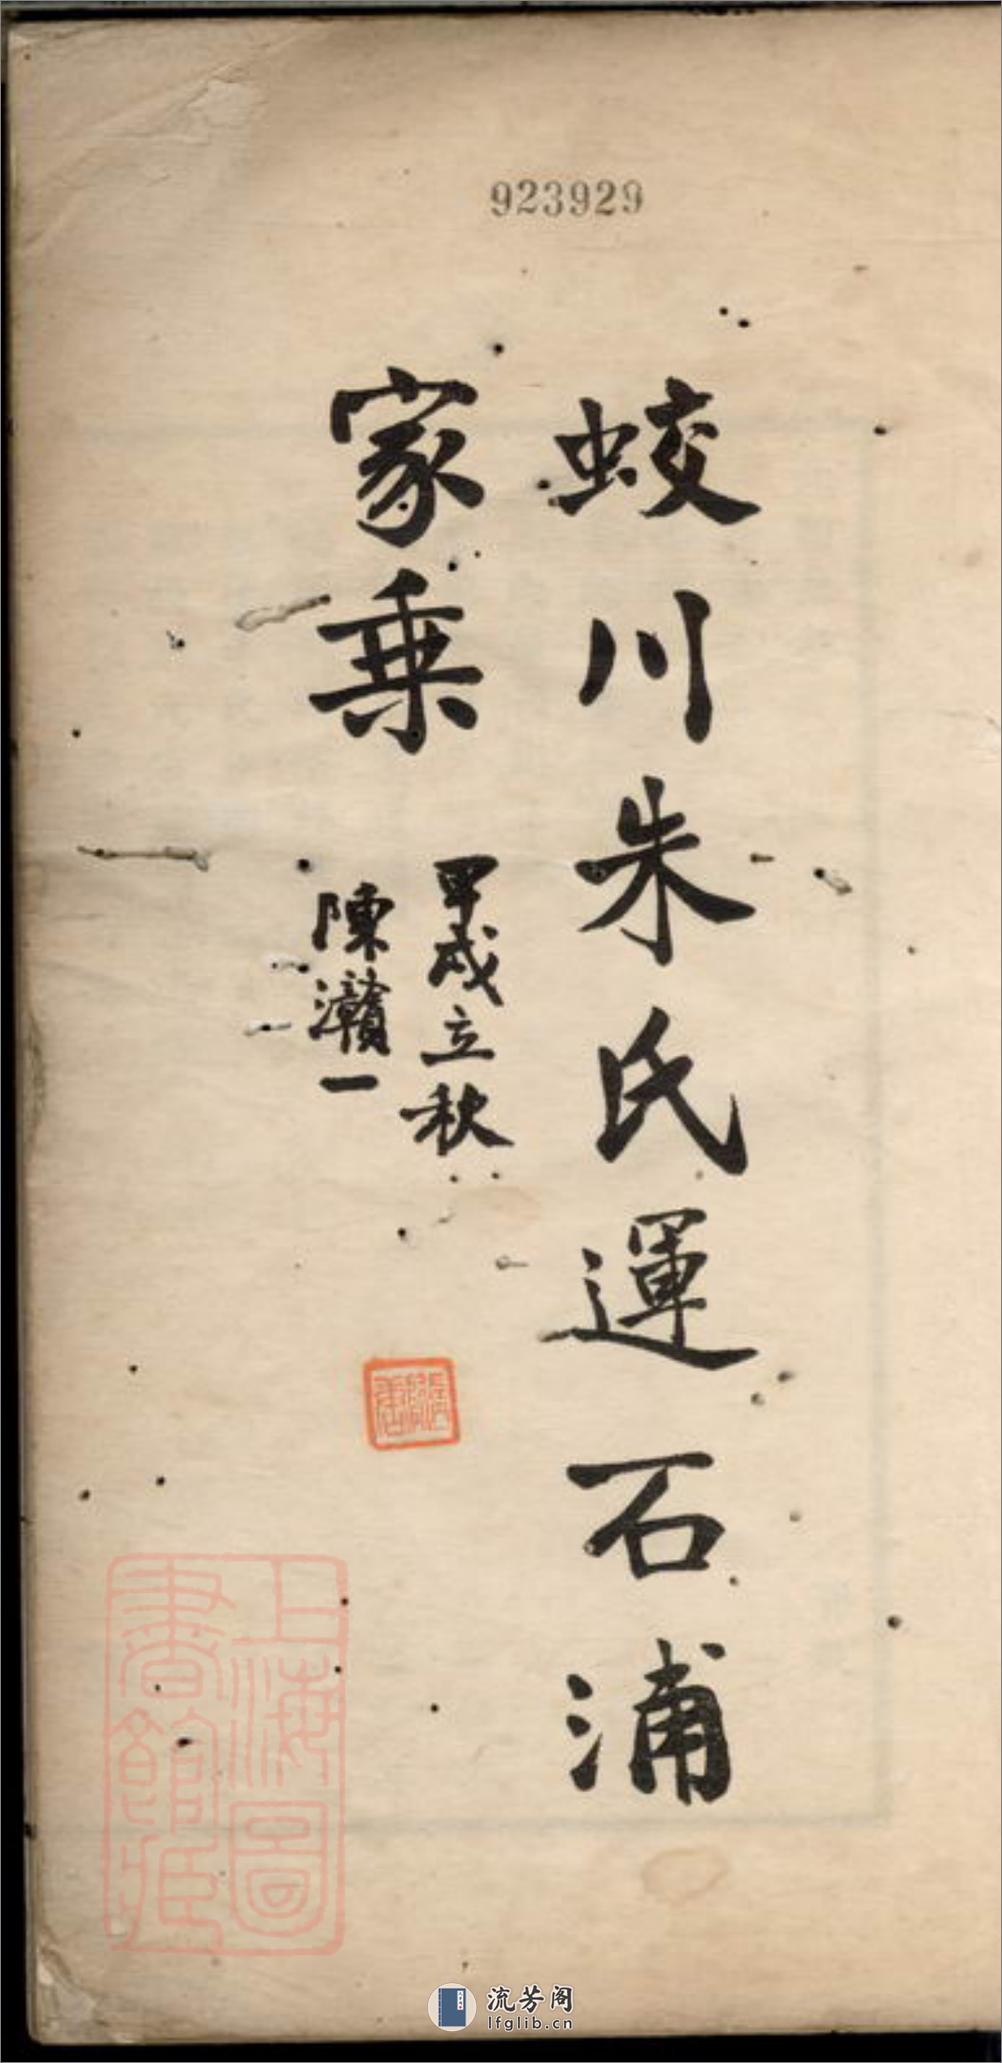 923929
蛟川朱氏運石浦
家乗
甲戌立秋
陳灨一
上海圖
書館藏
流芳阁
lfglib.cn